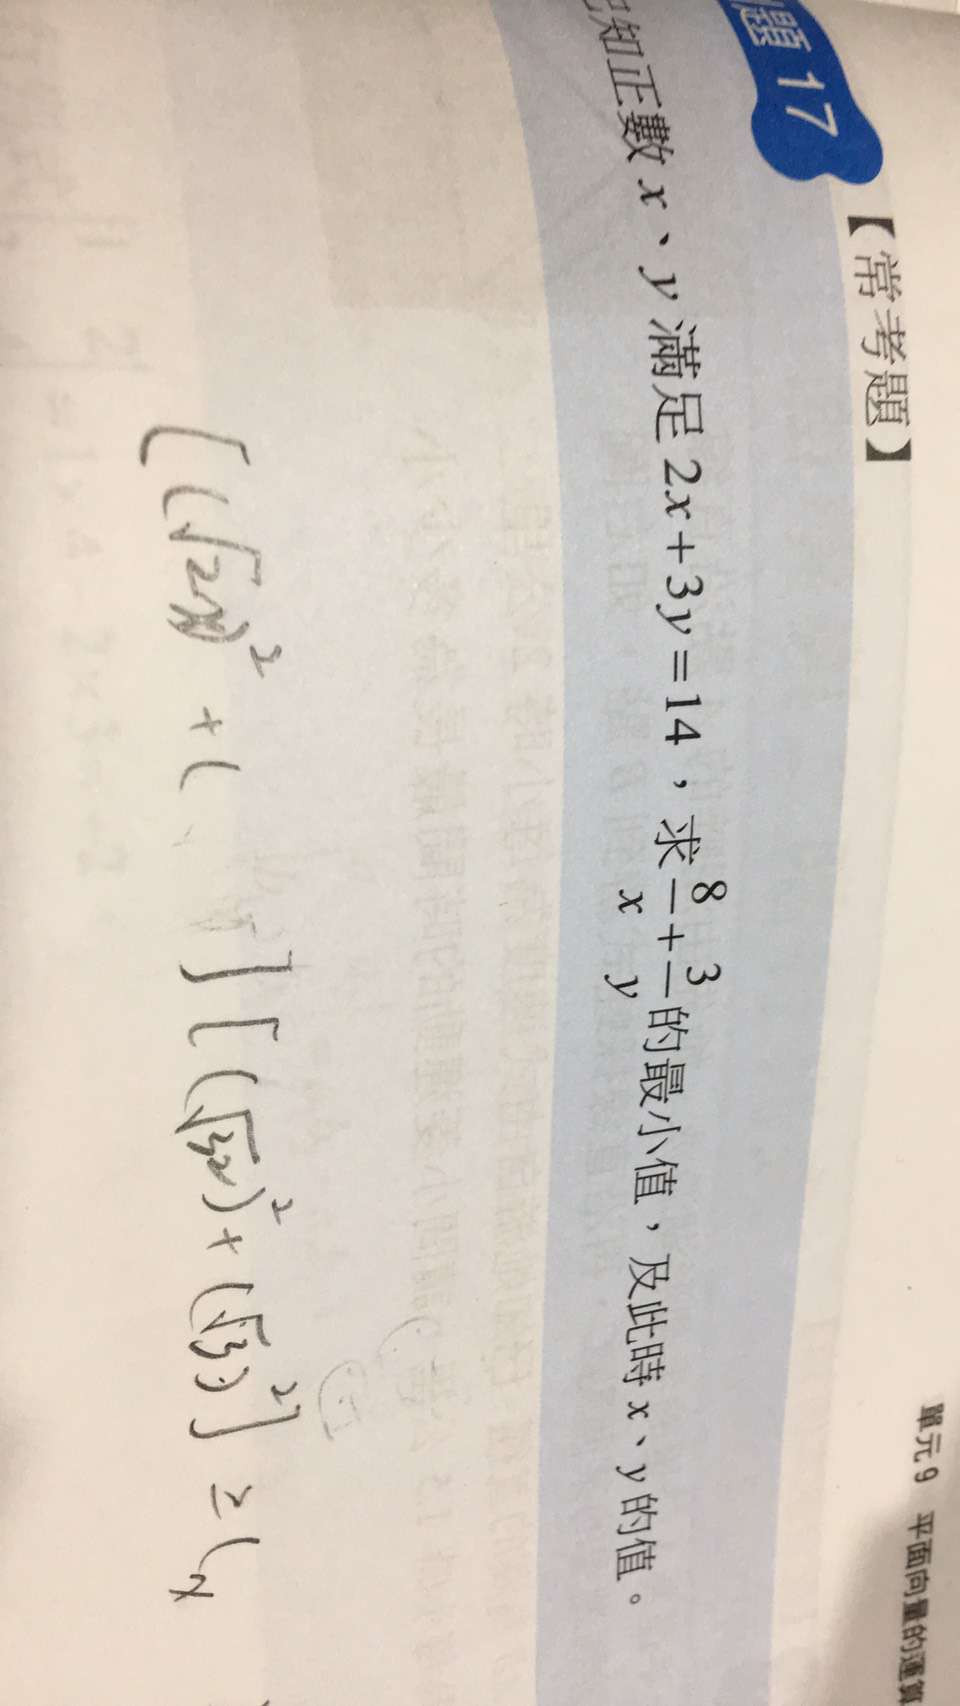 單元9 平面向量的運算
題 17
【常考題】
已知正數 x、y 滿足 2x+3y=14，求 8/x + 3/y 的最小值，及此時 x、y 的值。
[(√2x)² + ( ] [( )² + ( )²] ≥ (